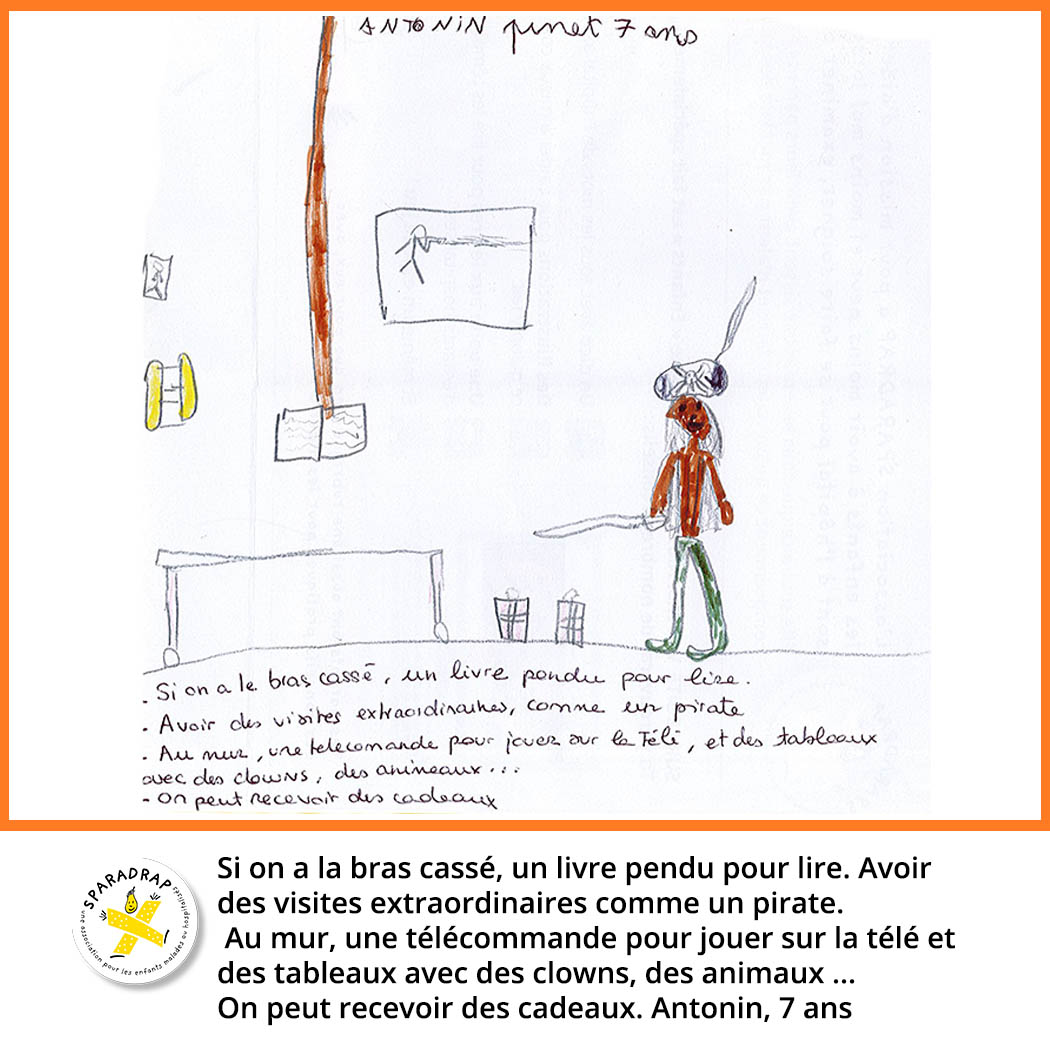 ANTONIN pinet 7 ans
. Si on a le bras cassé, un livre pendu pour lire.
. Avoir des visites extraordinaires, comme un pirate
. Au mur, une telecomande pour jouer sur la Télé, et des tableaux
avec des clowns, des animeaux...
- On peut recevoir des cadeaux
SPARADRAP
une association pour les enfants malades ou hospitalisés
Si on a la bras cassé, un livre pendu pour lire. Avoir
des visites extraordinaires comme un pirate.
Au mur, une télécommande pour jouer sur la télé et
des tableaux avec des clowns, des animaux ...
On peut recevoir des cadeaux. Antonin, 7 ans